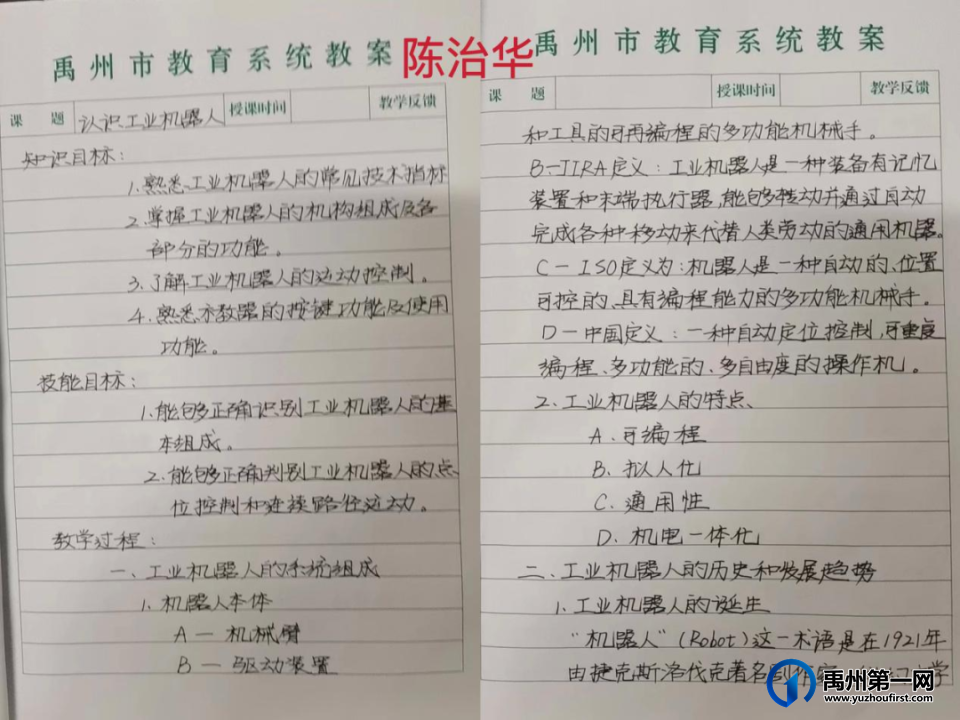 禹州市教育系统教案
陈治华
课 题 认识工业机器人 授课时间 教学反馈
知识目标:
1.熟悉工业机器人的常见技术指标
2.掌握工业机器人的机构组成及各
部分的功能。
3.了解工业机器人的运动控制。
4.熟悉示教器的按键功能及使用
功能。
技能目标:
1.能够正确识别工业机器人的基
本组成。
2.能够正确判别工业机器人的点
位控制和连续路径运动。
教学过程:
一、工业机器人的系统组成
1.机器人本体
A—机械臂
B—驱动装置
禹州市教育系统教案
课 题 授课时间 教学反馈
和工具的可再编程的多功能机械手。
B—JIRA定义:工业机器人是一种装备有记忆
装置和末端执行器,能够转动并通过自动
完成各种移动来代替人类劳动的通用机器。
C—ISO定义为:机器人是一种自动的、位置
可控的、具有编程能力的多功能机械手。
D—中国定义:一种自动定位控制,可重复
编程、多功能的、多自由度的操作机。
2.工业机器人的特点、
A.可编程
B.拟人化
C.通用性
D.机电一体化
二、工业机器人的历史和发展趋势
1.工业机器人的诞生
“机器人”(Robot)这一术语是在1921年
由捷克斯洛伐克著名剧作家
禹州第一网
www.yuzhoufirst.com